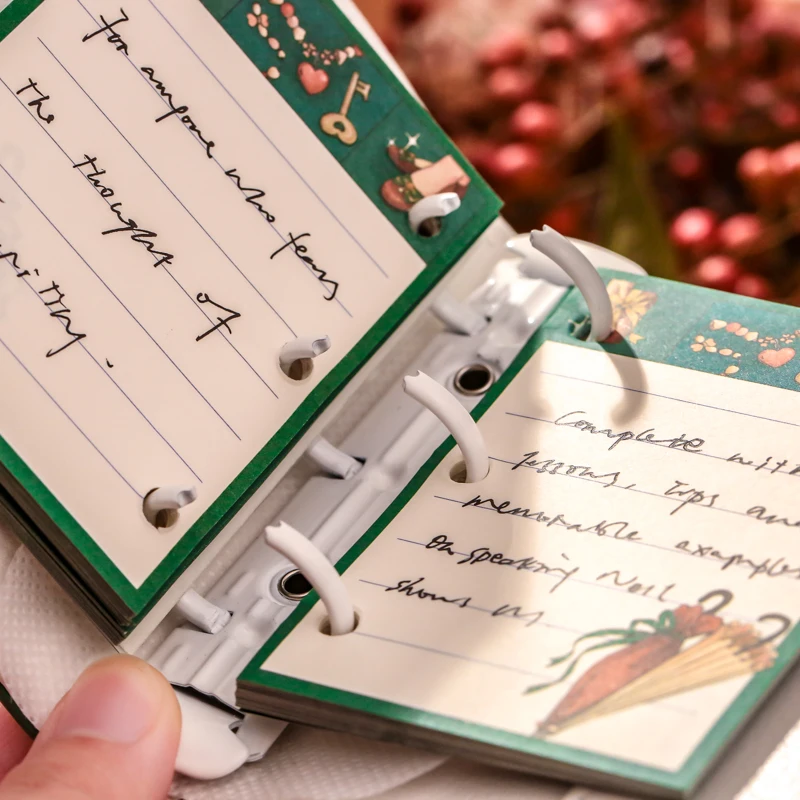 For anyone who fears
the thought of
Complete with
lessons, tips and
memorable examples
on speaking Neil
shows us